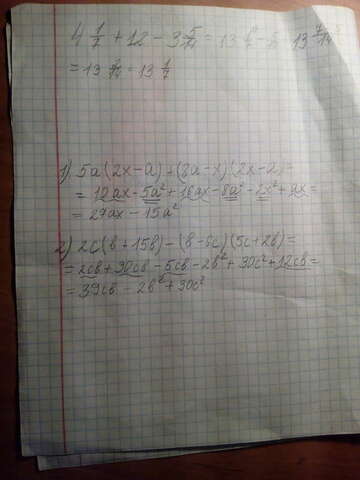 4 1/7 + 12 - 3 5/14 = 13
= 13 2/14 = 13 1/7
1) 5a(2x-a)+(8a-x)(2x-a)=
= 10ax-5a²+16ax-8a²-2x²+ax=
= 27ax-15a²
2) 2c(b+15b)-(b-6c)(5c+2b)=
= 2cb+30cb-5cb-2b²+30c²+12cb=
= 39cb-2b²+30c²